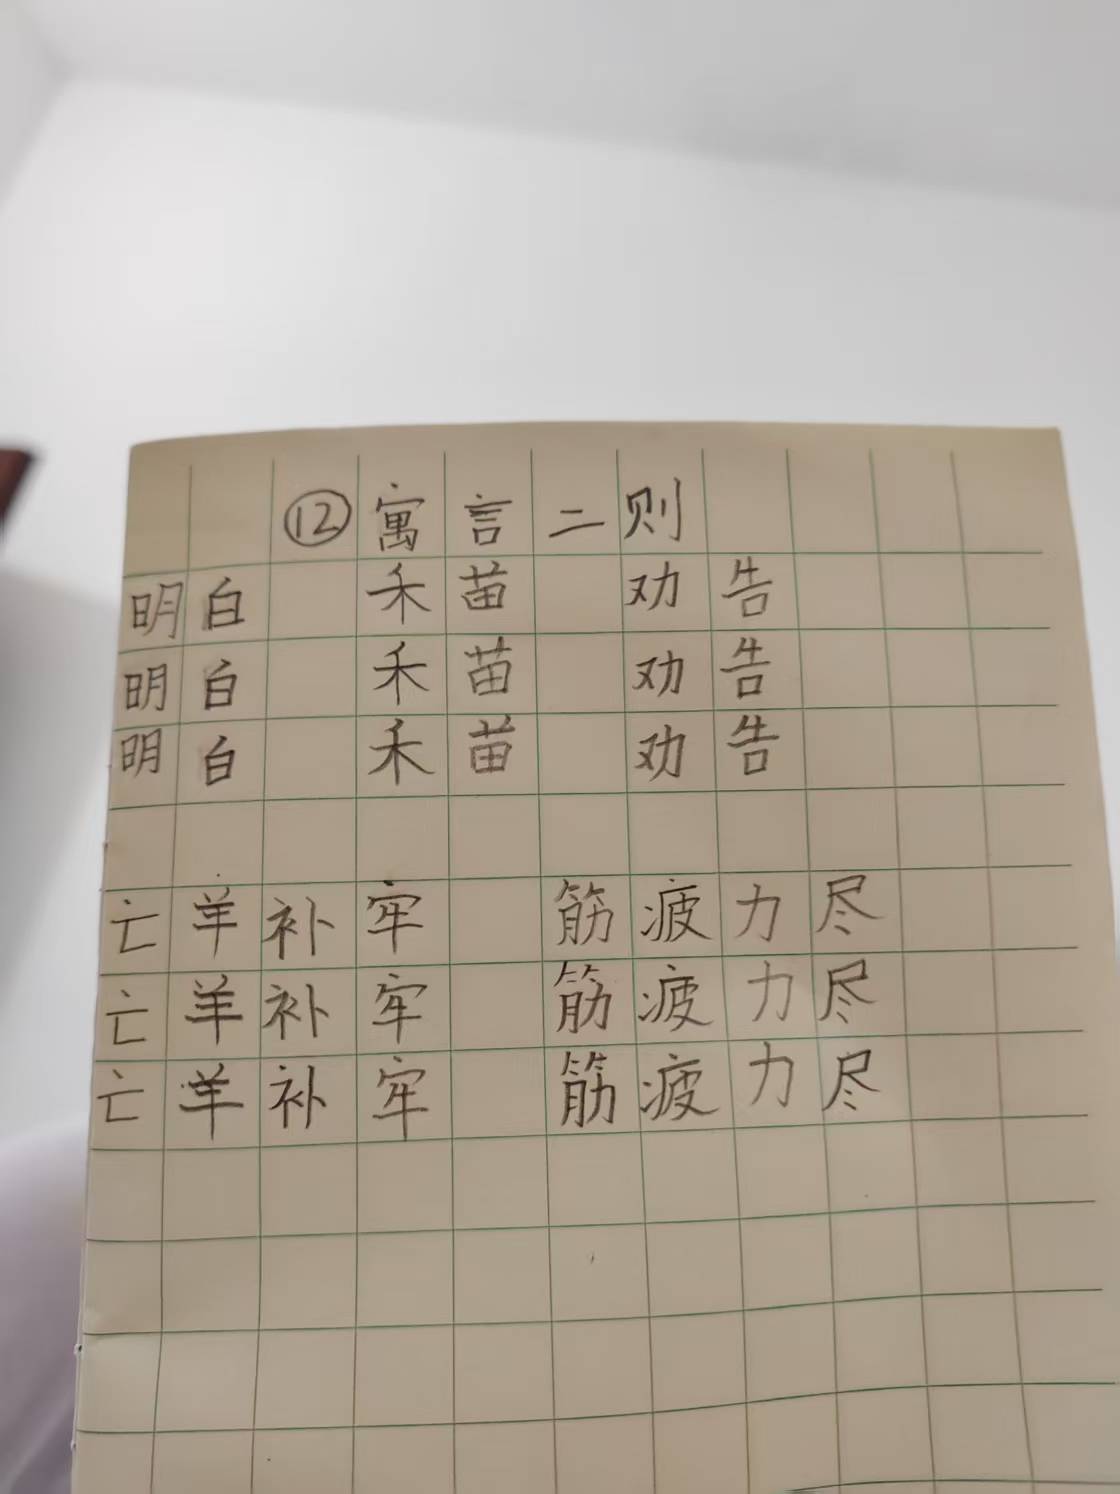 ⑫寓言二则
明白 禾苗 劝告
明白 禾苗 劝告
明白 禾苗 劝告
亡羊补牢 筋疲力尽
亡羊补牢 筋疲力尽
亡羊补牢 筋疲力尽